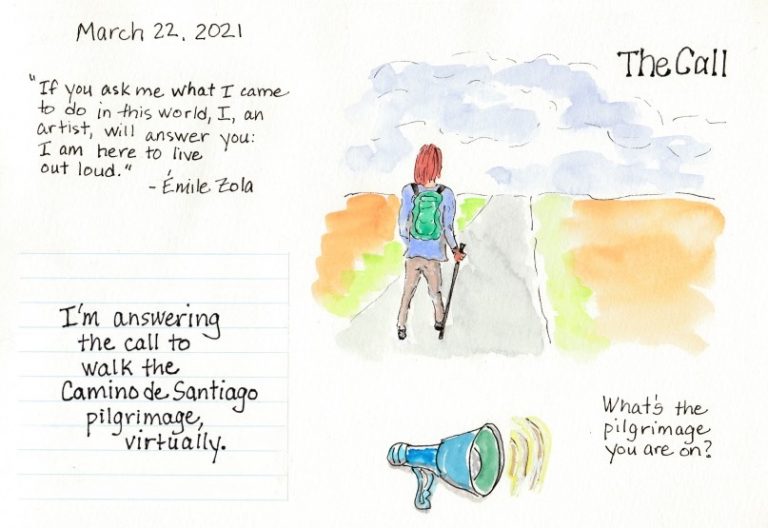 March 22, 2021
The Call
"If you ask me what I came
to do in this world, I, an
artist, will answer you:
I am here to live
out loud."
- Émile Zola
I'm answering
the call to
walk the
Camino de Santiago
pilgrimage,
virtually.
What's the
pilgrimage
you are on?